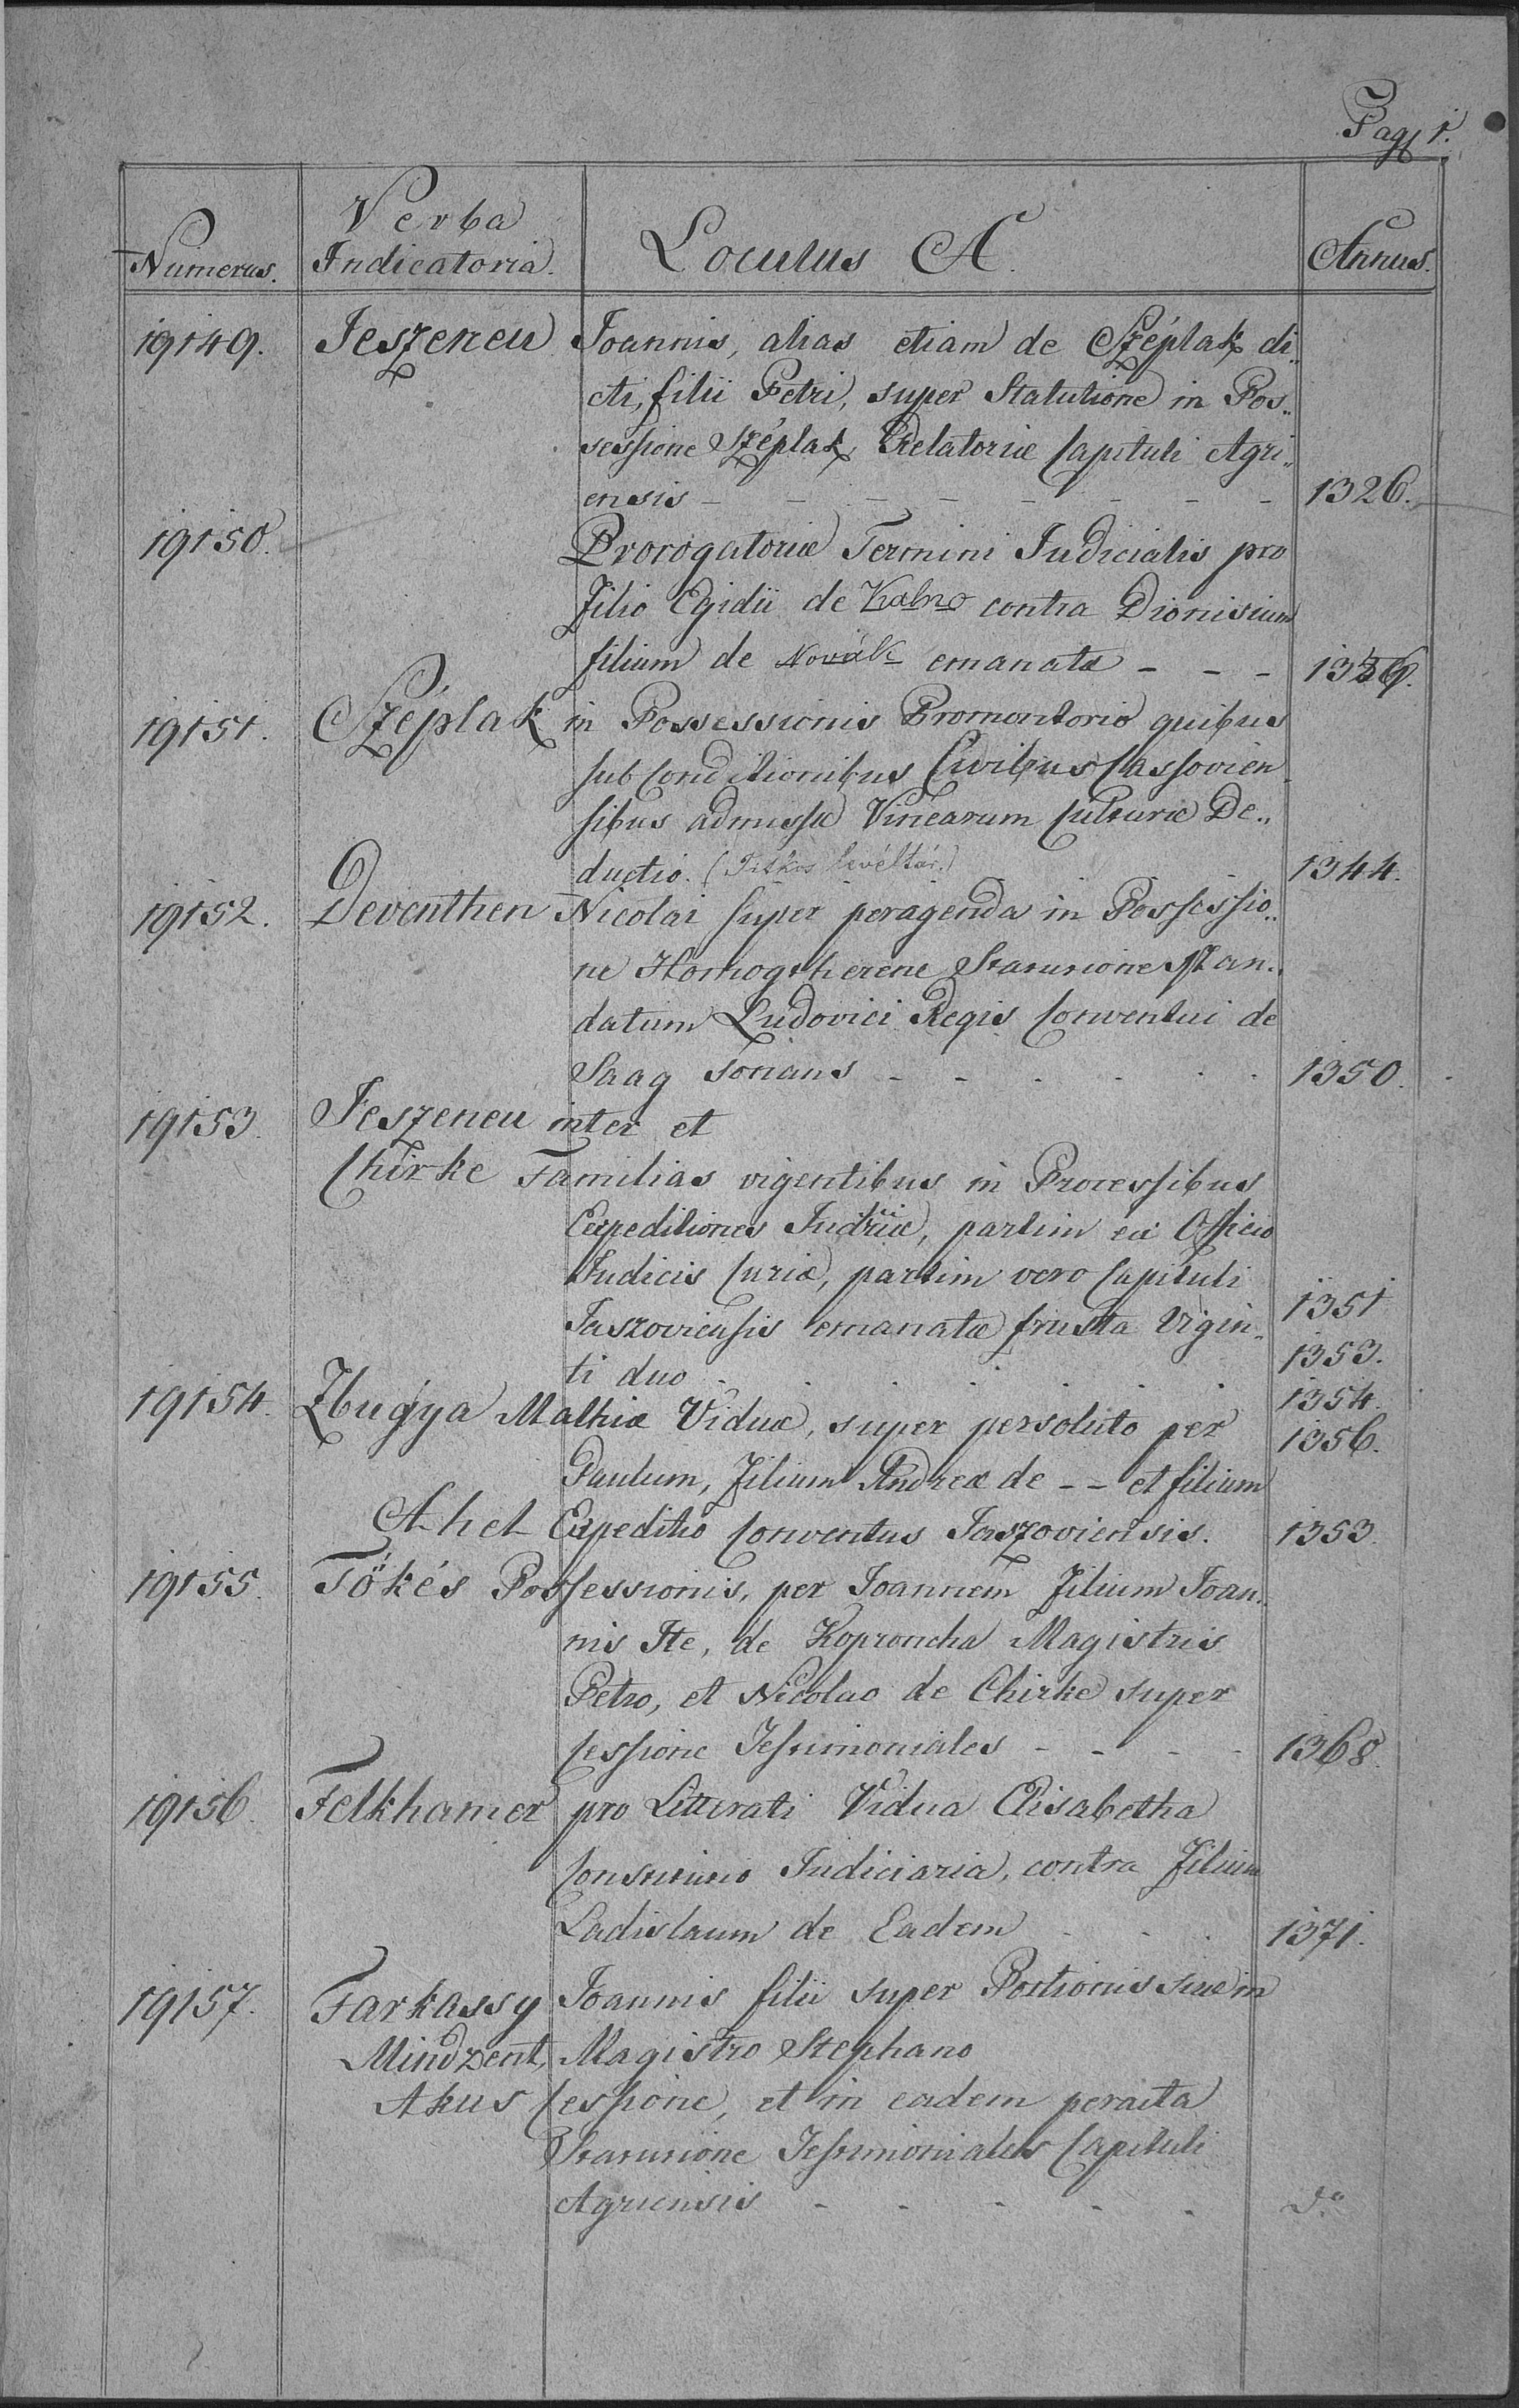 Pag 1.
Numerus. Verba Indicatoria. Loculus A. Annus.
19149. Jeszeneu Joannis, alias etiam de Széplak di„
cti, filii Petri, super Statutione in Pos„
sessione Széplak Relatoriæ Capituli Agri„
ensis - - - - - - - - 1326.
19150. Prorogatoriæ Termini Judicialis pro
Filio Egidii de Kalno contra Dionisium
filium de Novák emanatæ - - -
19151. Széplak in Possessionis Promontorio quibus
sub Conditionibus Civibus Cassovien
sibus admissæ Vinearum Culturæ De„
ductio. (Titkos levéltár.) 1344.
19152. Deventhen Nicolai super peragenda in Possessio„
ne Statutione Man„
datum Ludovici Regis Conventui de
Saag sonans - - - - - - 1350.
19153. Jeszeneu inter et
Chirke Familias vigentibus in Processibus
Expeditiones Judriæ, partim ex Officio
Judicis Curiæ, partim vero Capituli
Jaszoviensis emanatæ frusta Vigin„ 1351
ti duo . . . . . 1353.
19154. Zbugya Mathiæ Viduæ, super persoluto per 1354. 1356.
Paulum, Filium Andreæ de - - et filium
A-hel Expeditio Conventus Jaszoviensis. 1353.
19155. Tőkés Possessionis, per Joannem Filium Joan„
nis Ite, de Koproncha Magistris
Petro, et Nicolao de Chirke super
Cessione Testimoniales - - - - 1368.
19156. Felkhamer pro Litterati Vidua Elisabetha
Judiciaria, contra Filium
Ladislaum de Eadem . . . 1371.
19157. Farkassy Joannis filii super Portionis suæ in
Mindzent, Magistro Stephano
Akus Cessione, et in eadem peracta
Statutione Testimoniales Capituli
Agriensis - - - - - do